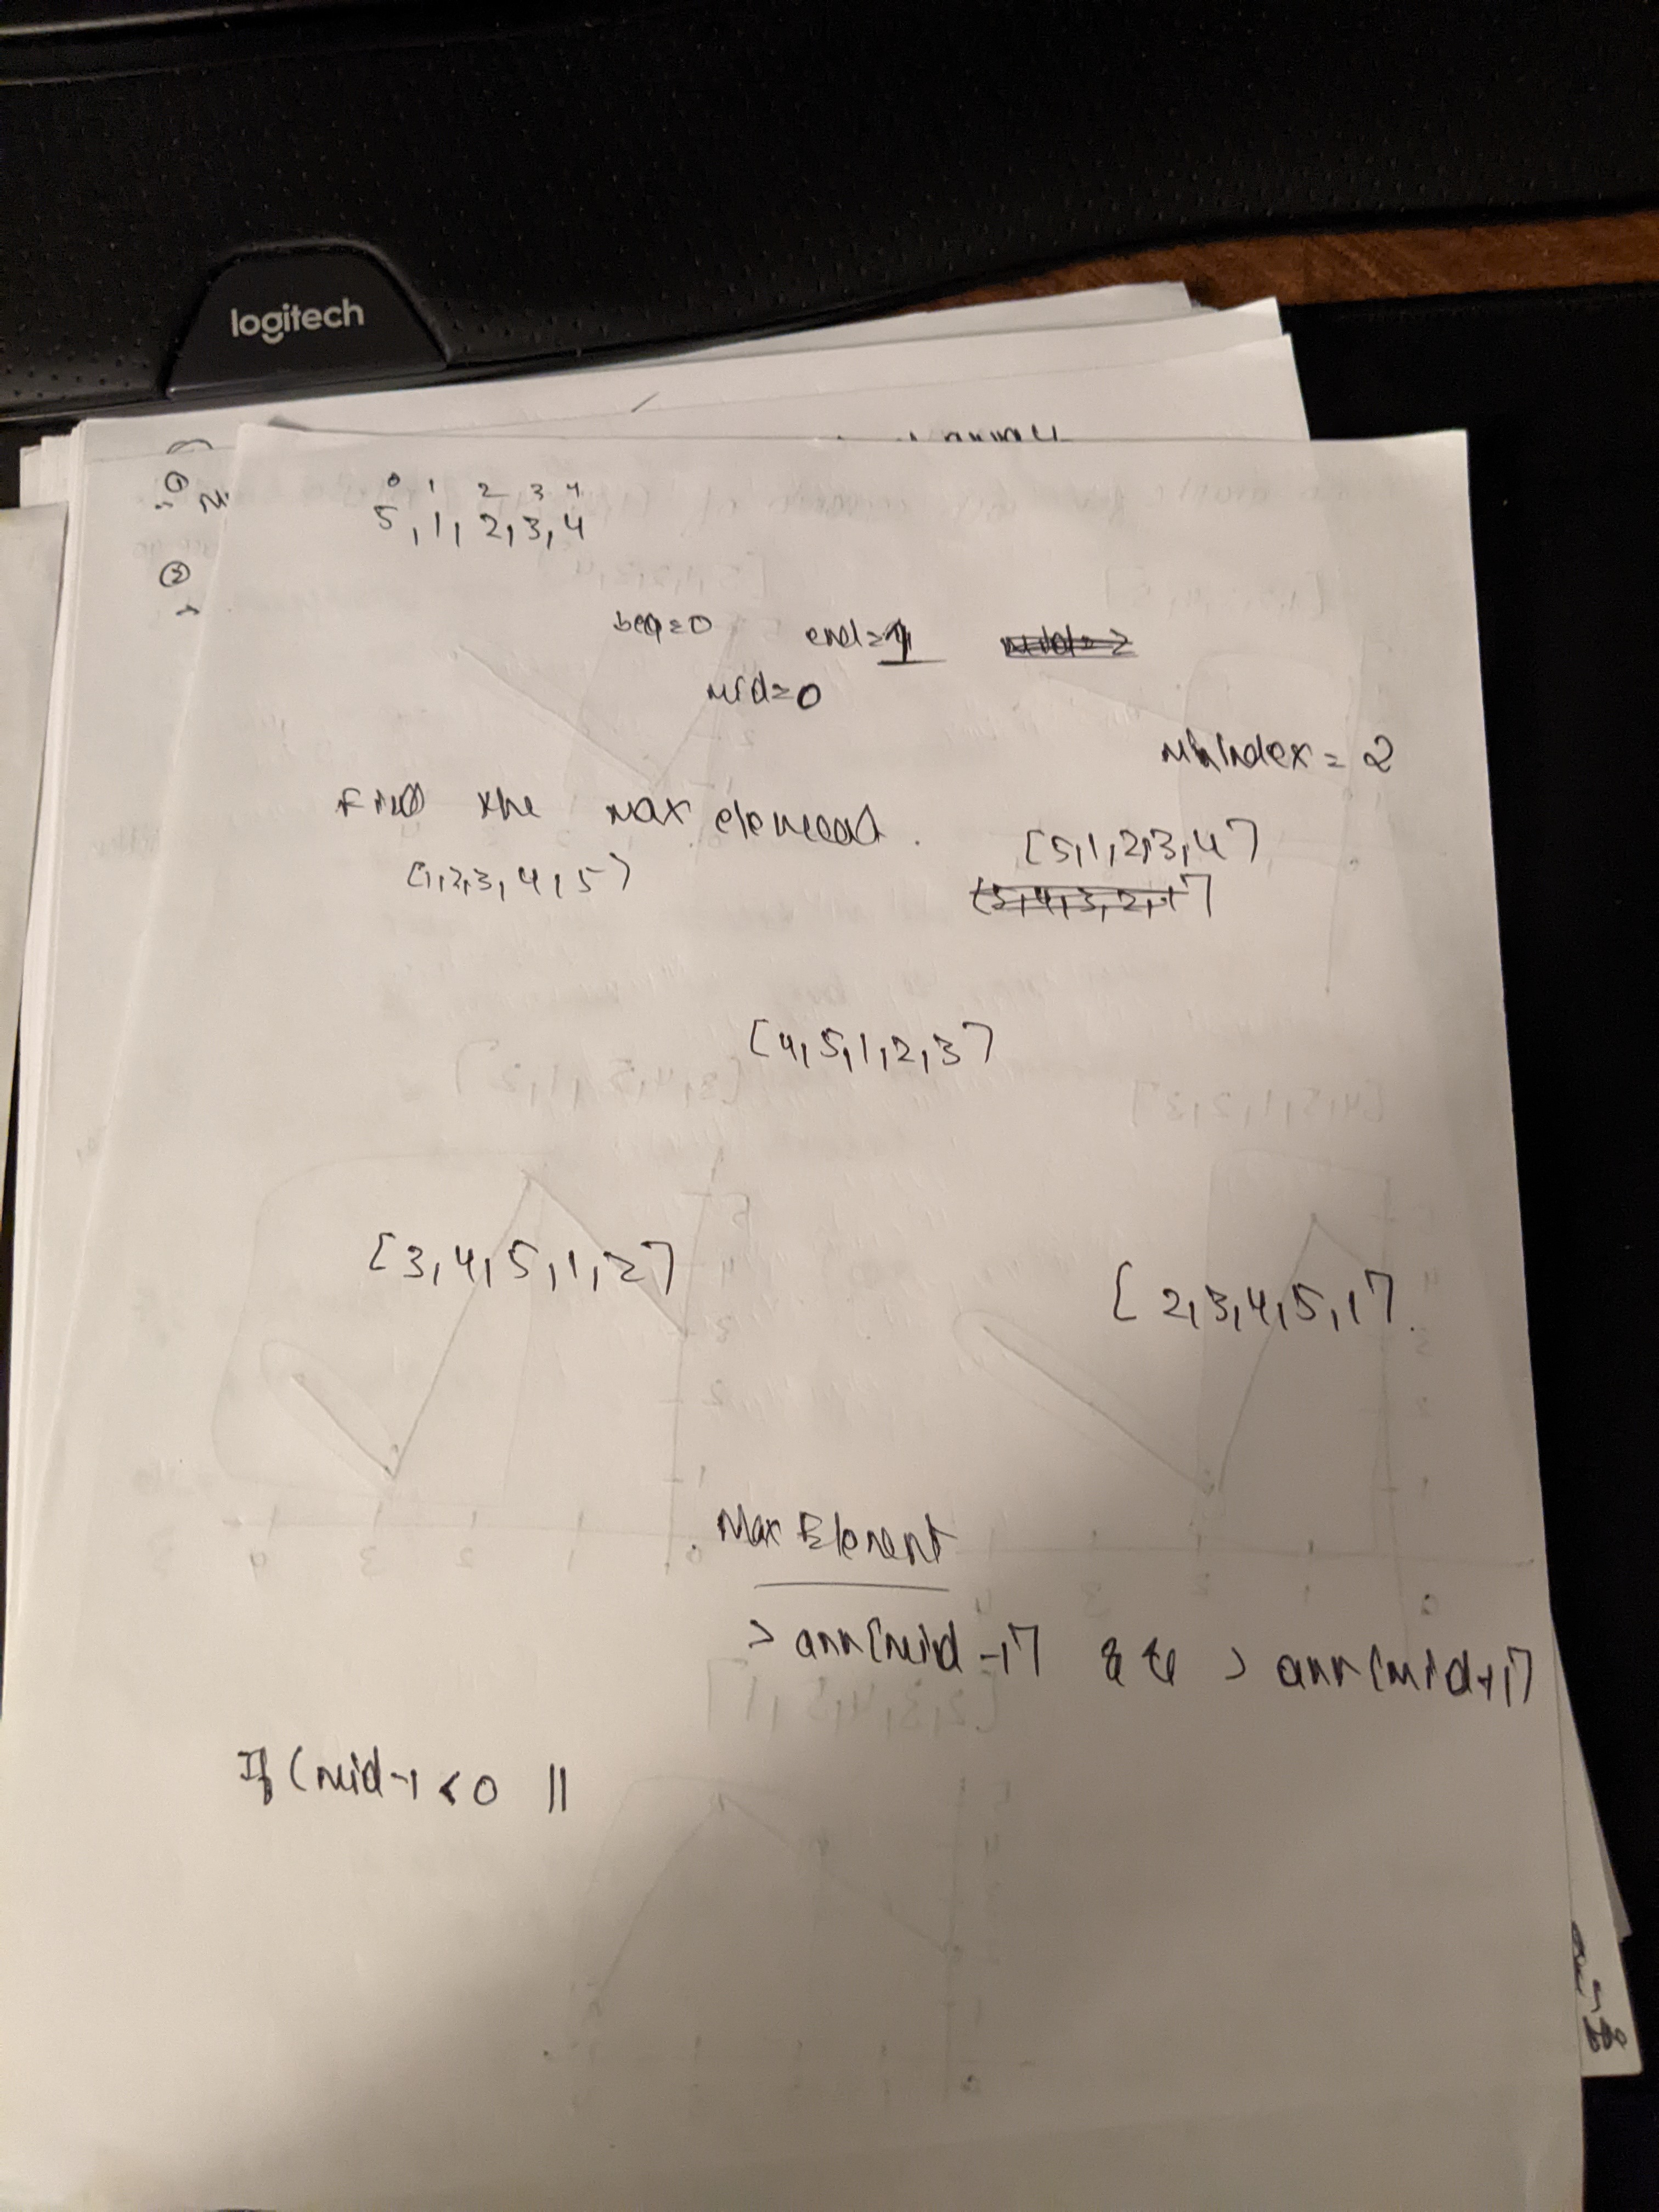 logitech
0 1 2 3 4
5, 1, 2, 3, 4
beg=0 end=1 mid=2
mid=0
MinIndex = 2
Find the Max element.
[5,1,2,3,4]
[1,2,3,4,5]
[5,4,3,2,1]
[4,5,1,2,3]
[3,4,5,1,2]
[2,3,4,5,1].
Max Element
> arr[mid-1] && > arr[mid+1]
If (mid-1 < 0 ||